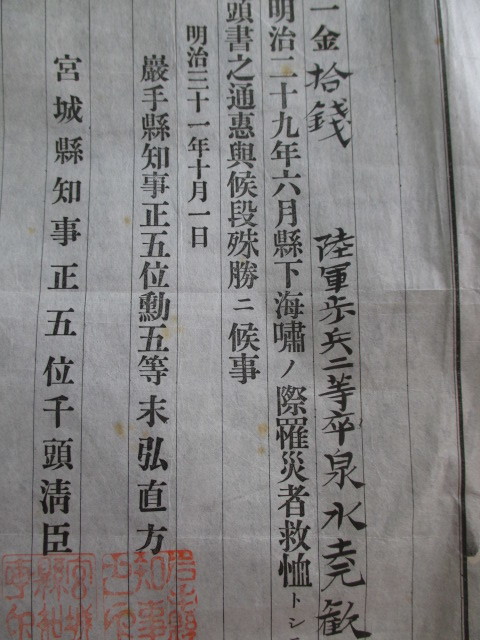 一金拾錢
陸軍歩兵二等卒泉水堯歓
明治二十九年六月縣下海嘯ノ際罹災者救恤トシテ
頭書之通惠與候段殊勝ニ候事
明治三十一年十月一日
巖手縣知事正五位勳五等末弘直方
宮城縣知事正五位千頭清臣